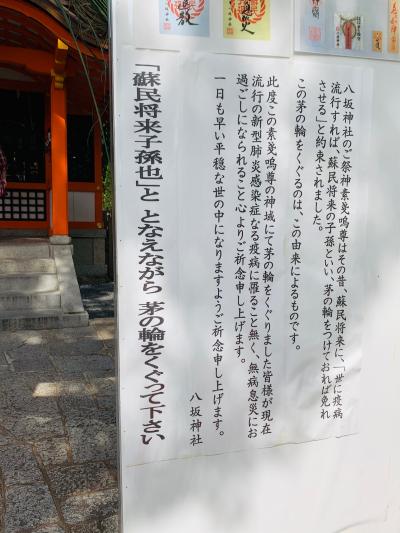 八坂神社のご祭神素戔嗚尊はその昔、蘇民将来に、「世に疫病
流行すれば、蘇民将来の子孫といい、茅の輪をつけておれば免れ
させる」と約束されました。
この茅の輪をくぐるのは、この由来によるものです。
此度この素戔嗚尊の神域にて茅の輪をくぐりました皆様が現在
流行の新型肺炎感染症なる疫病に罹ること無く、無病息災にお
過ごしになられること心よりご祈念申し上げます。
一日も早い平穏な世の中になりますようご祈念申し上げます。
八坂神社
「蘇民将来子孫也」と となえながら 茅の輪をくぐって下さい